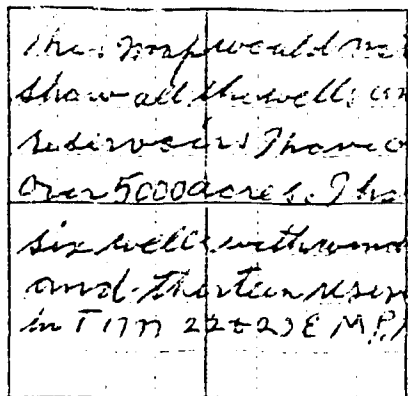 This map would no
show all the wells an
reservoirs I have o
over 5000 acres. I ha
six wells with wind
and thirteen reser
in T 17 N 22 & 23 E M.P.